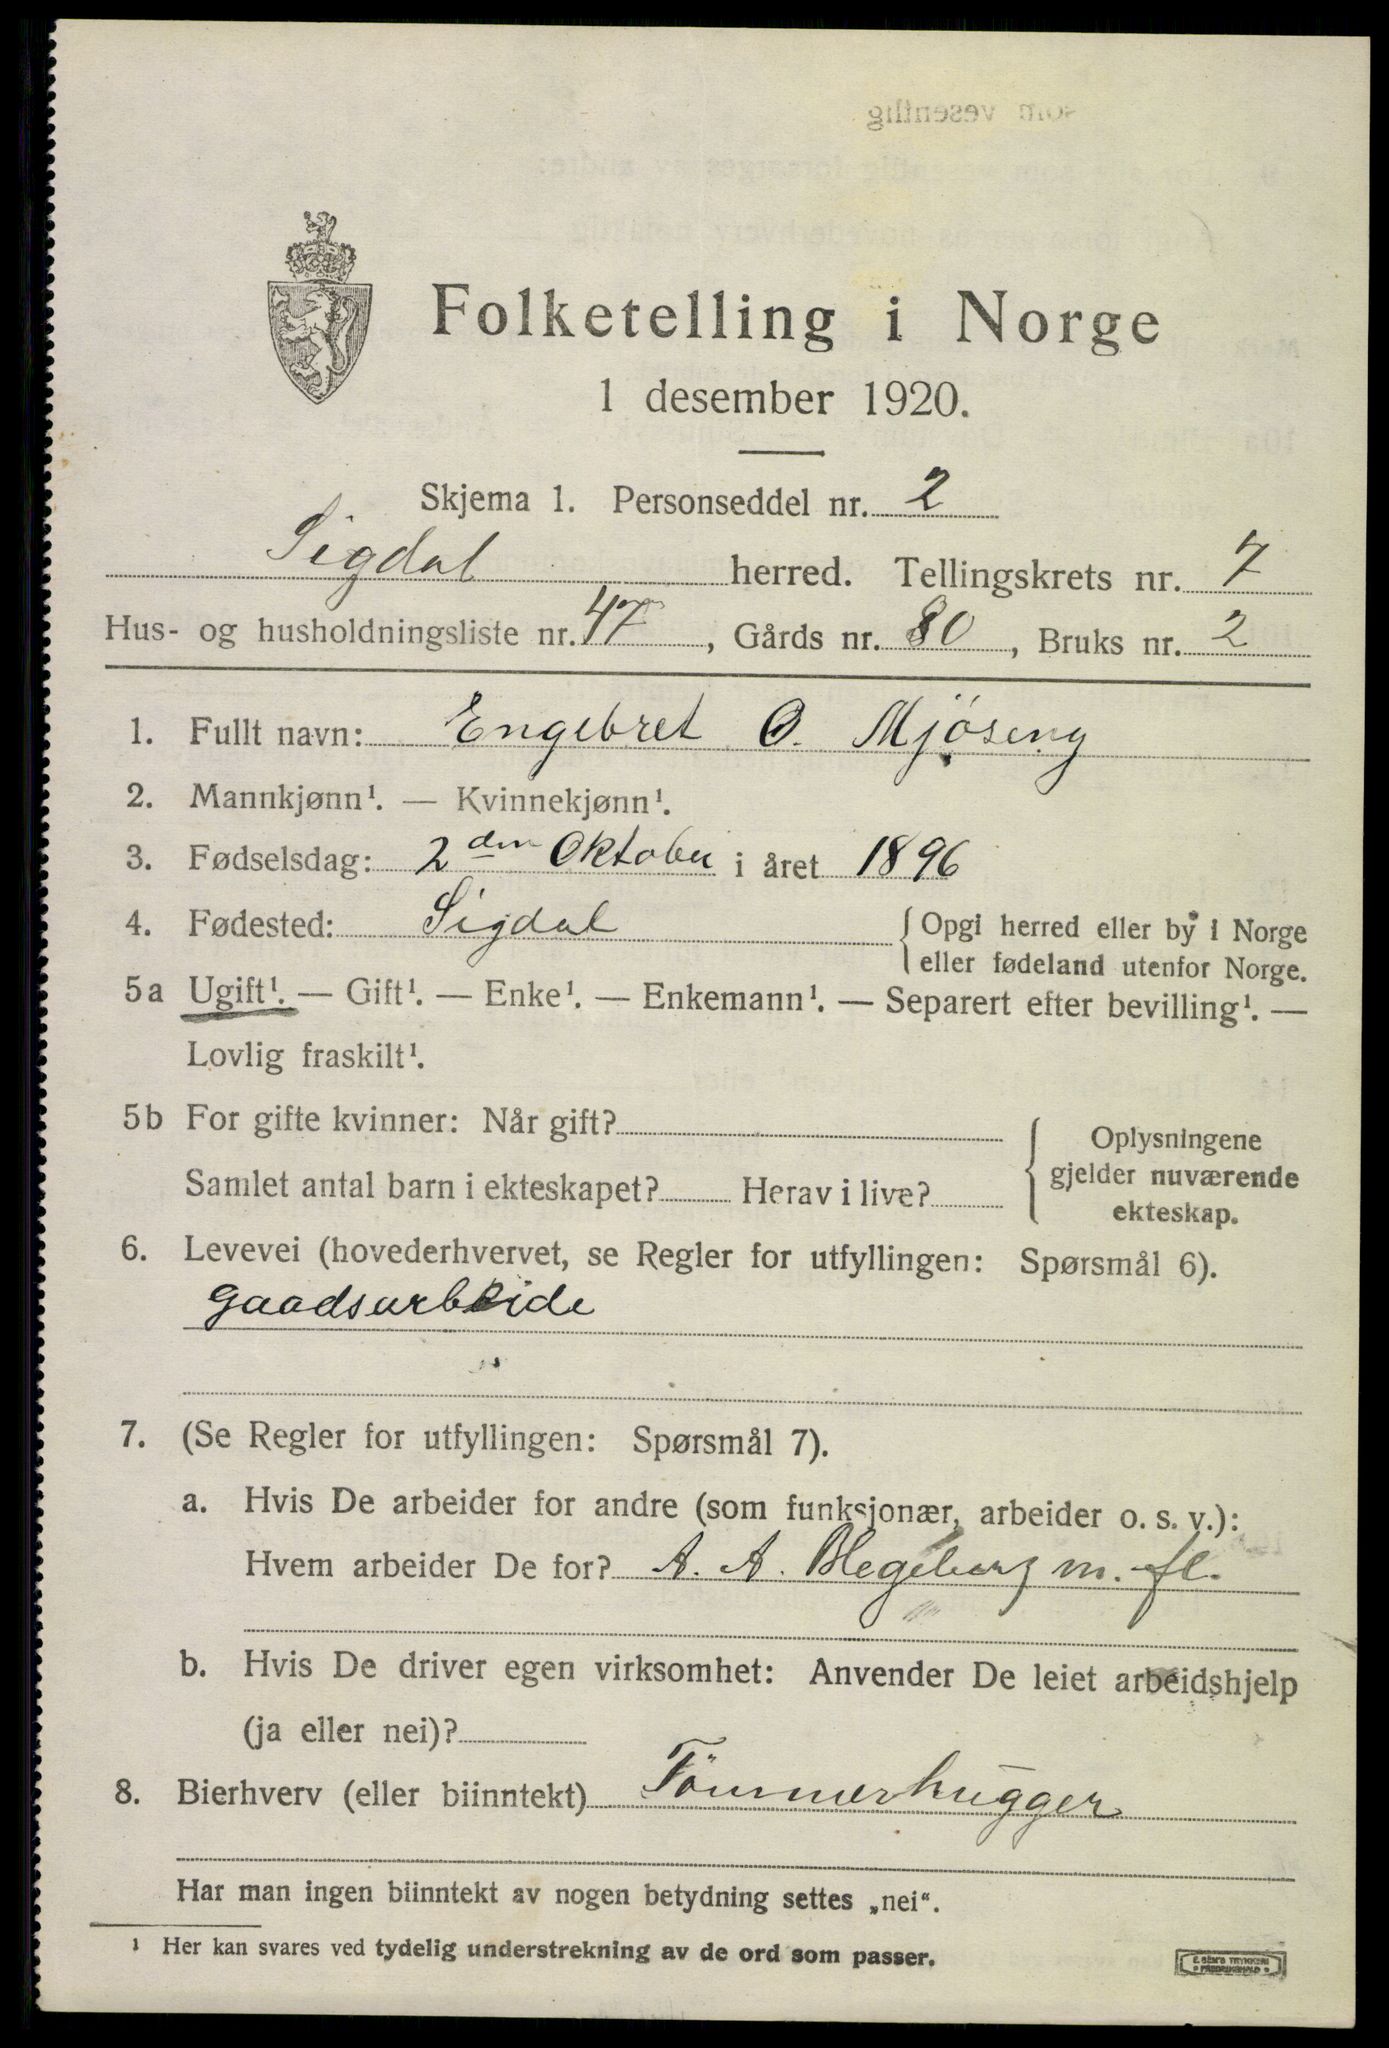 Folketelling i Norge
1 desember 1920.
Skjema 1. Personseddel nr. 2
Sigdal herred. Tellingskrets nr. 7
Hus- og husholdningsliste nr. 47, Gårds nr. 80, Bruks nr. 2
1. Fullt navn: Engebret O. Mjøseng
2. Mannkjønn¹. — Kvinnekjønn¹.
3. Fødselsdag: 2den Oktober i året 1896
4. Fødested: Sigdal {Opgi herred eller by i Norge
eller fødeland utenfor Norge.
5a Ugift¹. — Gift¹. — Enke¹. — Enkemann¹. — Separert efter bevilling¹. —
Lovlig fraskilt¹.
5b For gifte kvinner: Når gift?
Samlet antal barn i ekteskapet? Herav i live?
{ Oplysningene
gjelder nuværende
ekteskap.
6. Levevei (hovederhvervet, se Regler for utfyllingen: Spørsmål 6).
gaadsarbeide
7. (Se Regler for utfyllingen: Spørsmål 7).
a. Hvis De arbeider for andre (som funksjonær, arbeider o. s. v.):
Hvem arbeider De for? A. A. Blegeberg m. fl.
b. Hvis De driver egen virksomhet: Anvender De leiet arbeidshjelp
(ja eller nei)?
8. Bierhverv (eller biinntekt) Tömmerhugger
Har man ingen biinntekt av nogen betydning settes „nei“.
¹ Her kan svares ved tydelig understrekning av de ord som passer.